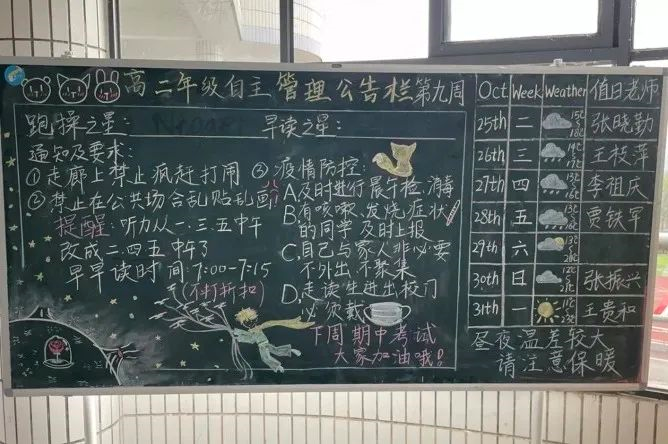 高二年级自主管理公告栏 第九周
跑操之星: 早读之星:
通知及要求:
① 走廊上禁止疯赶打闹
② 禁止在公共场合乱贴乱画
提醒: 听力从一.三.五中午
改成二四五中午了
早早读时间:7:00-7:15
(不打折扣)
③ 疫情防控:
A 及时进行晨午检、消毒
B 有咳嗽、发烧症状
的同学及时上报
C.自己与家人非必要
不外出、不聚集
D.走读生进出校门
必须戴
下周期中考试
大家加油哦!
Oct. Week Weather 值日老师
25th 二 张晓勤
26th 三 王枝萍
27th 四 李祖庆
28th 五 贾铁军
29th 六
30th 日 张振兴
31th 一 王贵和
昼夜温差较大
请注意保暖